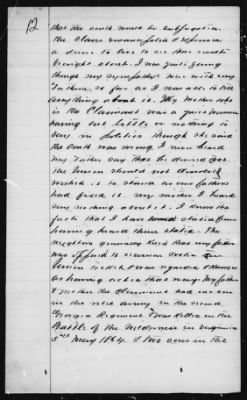 12
that the south must be subjugated
the slaves emancipated &
a desire to live to see that result
brought about. I was quite young
though my sympathies were with my
Father, so far as I was able to see
anything about it. My Mother who
is the Claimant was a quiet woman
having but little or nothing to
say in politics though she said
the South was wrong. I never heard
my Father say that he
the Union should not
wished it to stand as our fathers
had fixed it. my mother I heard
say nothing about it. I know the
facts that I have stated from
having heard them stated. The
neighbors generally knew that my father
was opposed to secession
Union
as having acted that way. My father
& Mother the Claimant had one son
in the reb army in the
Georgia Regiment was killed in the
Battle of the Wilderness in Virginia
5th May 1864. I was seen in the